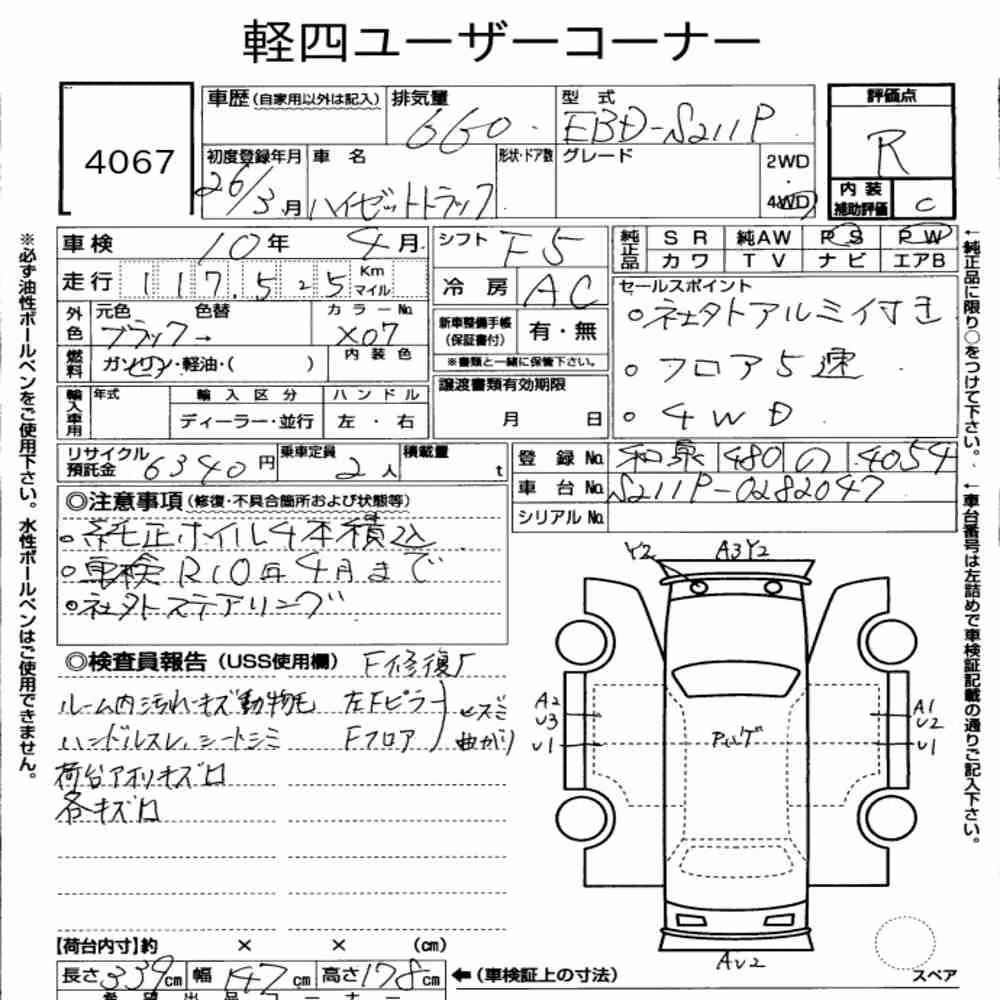 軽四ユーザーコーナー
4067
車歴(自家用以外は記入) 排気量 660 型式 EBD-S211P
評価点 R
初度登録年月 26/3月 車名 ハイゼットトラック 形状・ドア数 グレード 2WD・4WD
内装補助評価 C
車検 10年4月 シフト F5 純正品 SR 純AW PS PW
カワ TV ナビ エアB
走行 117,525 Km マイル 冷房 AC
外色 元色 ブラック→ 色替 カラーNo. X07 新車整備手帳(保証書付) 有・無
※書類と一緒に保管下さい。
燃料 ガソリン・軽油・( ) 内装色
セールスポイント
○社外アルミ付き
○フロア5速
○4WD
輸入車用 年式 輸入区分 ハンドル 譲渡書類有効期限
ディーラー・並行 左・右 月 日
リサイクル預託金 6340円 乗車定員 2人 積載量 t
登録No. 和泉 480 の 4054
車台No. S211P-0282047
シリアルNo.
◎注意事項(修復・不具合箇所および状態等)
○純正ホイル4本積込
○車検R10年4月まで
○社外ステアリング
◎検査員報告(USS使用欄) F修復
ルーム内汚れキズ動物毛 左Fピラー
ハンドルスレ、シートシミ Fフロア 曲がり
荷台アオリキズ凹
各キズ凹
Y2 A3Y2
A2 U3 U1
A1 U2 U1
AU2
スペア
【荷台内寸】約 × × (cm)
長さ339cm 幅147cm 高さ178cm ←(車検証上の寸法)
※必ず油性ボールペンをご使用下さい。水性ボールペンはご使用できません。
←純正品に限り○をつけて下さい。
←車台番号は左詰めで車検証記載の通りご記入下さい。